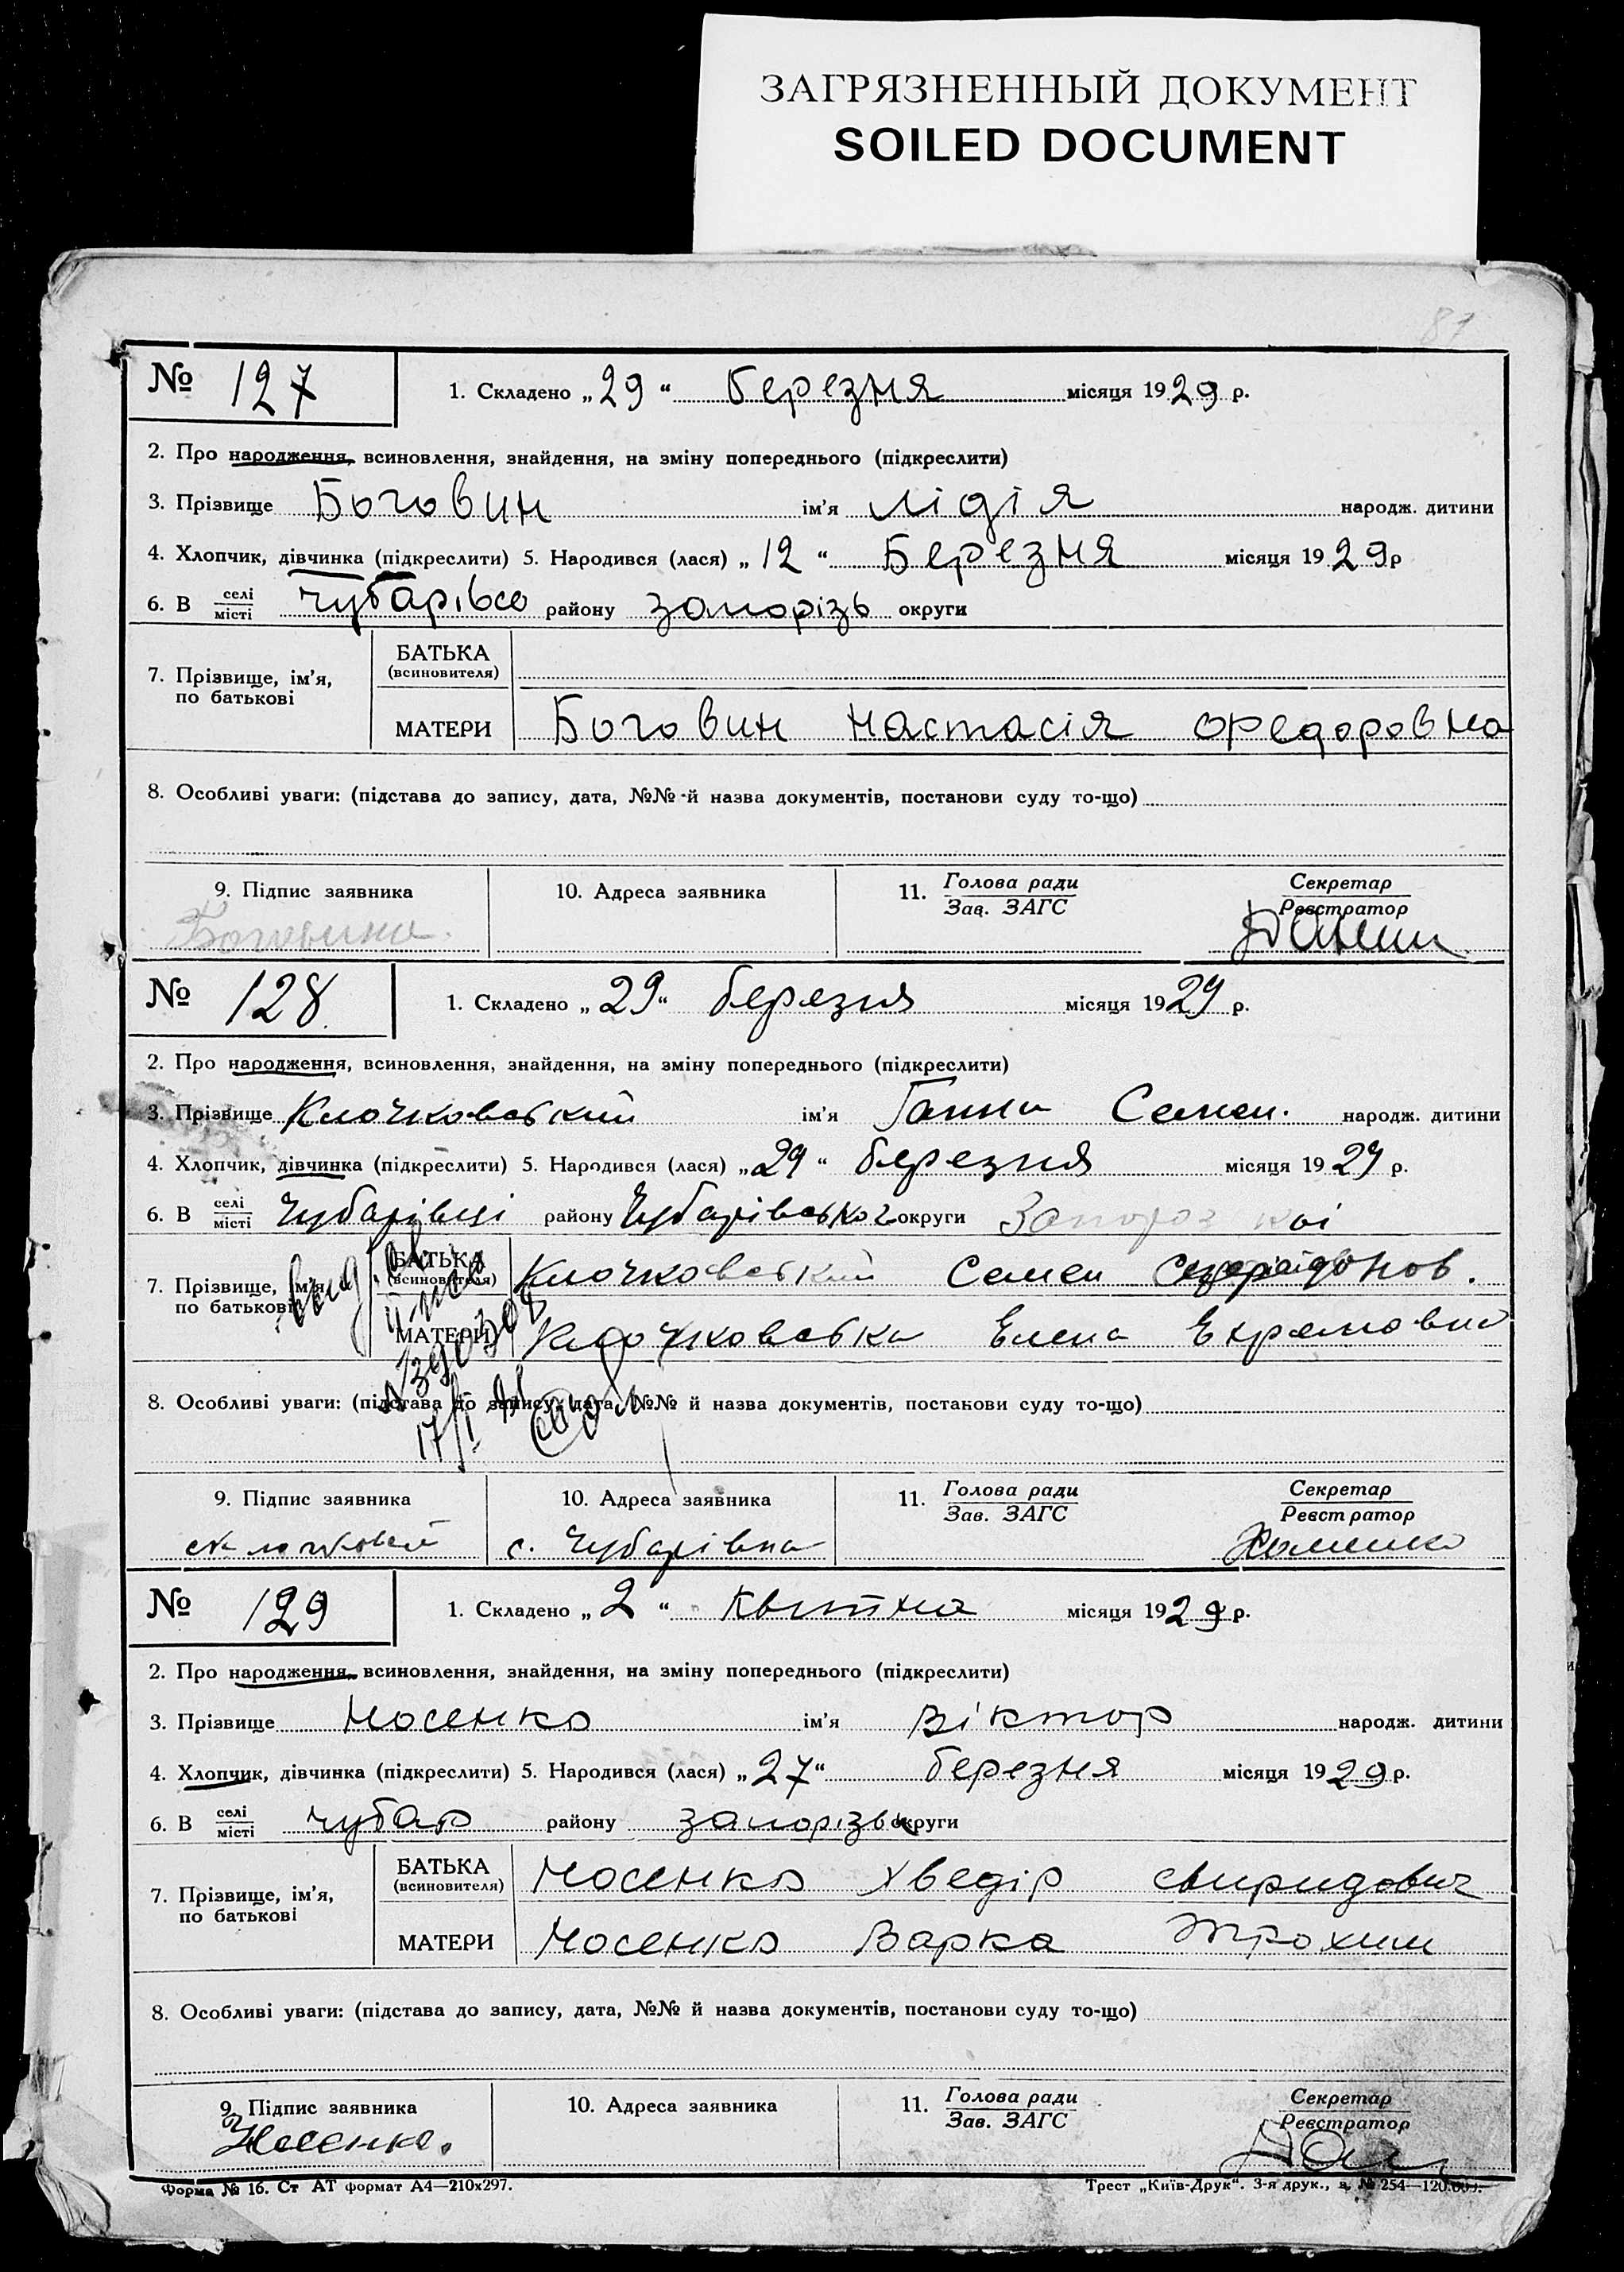 ЗАГРЯЗНЕННЫЙ ДОКУМЕНТ
SOILED DOCUMENT
81
№ 127
1. Складено „29“ Березня місяця 1929 р.
2. Про народження, всиновлення, знайдення, на зміну попереднього (підкреслити)
3. Прізвище Боговин ім'я лідія народж. дитини
4. Хлопчик, дівчинка (підкреслити) 5. Народився (лася) „12“ Березня місяця 1929р
6. В селі/місті Чубарівсо району запорізь округи
7. Прізвище, ім'я, по батькові
БАТЬКА (всиновителя)
МАТЕРИ Боговин настасія Федоровна
8. Особливі уваги: (підстава до запису, дата, №№ й назва документів, постанови суду то-що)
9. Підпис заявника 10. Адреса заявника 11. Голова ради/Зав. ЗАГС Секретар/Реєстратор
Боговина.
№ 128
1. Складено „29“ березня місяця 1929 р.
2. Про народження, всиновлення, знайдення, на зміну попереднього (підкреслити)
3. Прізвище Клочковський ім'я Ганна Семен. народж. дитини
4. Хлопчик, дівчинка (підкреслити) 5. Народився (лася) „29“ березня місяця 1929 р.
6. В селі/місті Чубарівці району Чубарівського округи
7. Прізвище, ім'я, по батькові
БАТЬКА (всиновителя) Клочковський Семен
МАТЕРИ Клочковська Елена
17/I
8. Особливі уваги: (підстава до запису, дата, №№ й назва документів, постанови суду то-що)
9. Підпис заявника 10. Адреса заявника 11. Голова ради/Зав. ЗАГС Секретар/Реєстратор
с. Чубарівка Хоменко
№ 129
1. Складено „2“ Квитня місяця 1929 р.
2. Про народження, всиновлення, знайдення, на зміну попереднього (підкреслити)
3. Прізвище Носенко ім'я Віктор народж. дитини
4. Хлопчик, дівчинка (підкреслити) 5. Народився (лася) „27“ березня місяця 1929 р.
6. В селі/місті чубар району запорізьк округи
7. Прізвище, ім'я, по батькові
БАТЬКА (всиновителя) Носенко Хведір Свиридович
МАТЕРИ Носенко Варка Трохим
8. Особливі уваги: (підстава до запису, дата, №№ й назва документів, постанови суду то-що)
9. Підпис заявника 10. Адреса заявника 11. Голова ради/Зав. ЗАГС Секретар/Реєстратор
Носенко.
Форма № 16. Ст АТ формат А4—210x297. Трест „Київ-Друк“. 3-я друк., з. № 254—120.000.